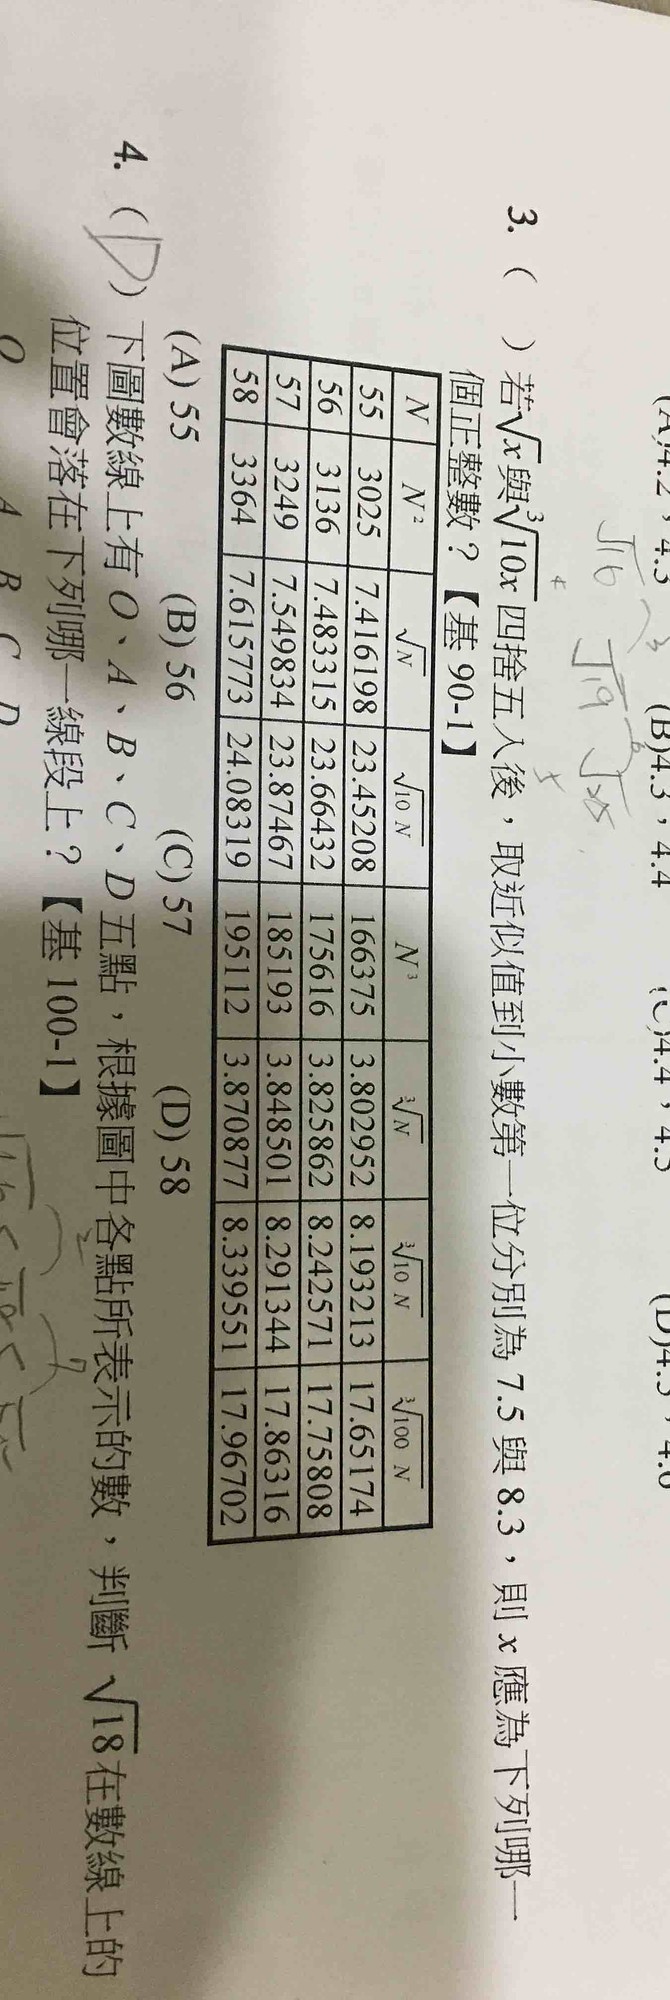 (A)4.2，4.3 (B)4.3，4.4 (C)4.4，4.5 (D)4.5，4.6
√16 √19 √25
3. ( ) 若√x與∛10x 四捨五入後，取近似值到小數第一位分別為 7.5 與 8.3，則 x 應為下列哪一
個正整數？【基 90-1】
N N² √N √10 N N³ ∛N ∛10 N ∛100 N
55 3025 7.416198 23.45208 166375 3.802952 8.193213 17.65174
56 3136 7.483315 23.66432 175616 3.825862 8.242571 17.75808
57 3249 7.549834 23.87467 185193 3.848501 8.291344 17.86316
58 3364 7.615773 24.08319 195112 3.870877 8.339551 17.96702
(A) 55 (B) 56 (C) 57 (D) 58
4. (D) 下圖數線上有 O、A、B、C、D 五點，根據圖中各點所表示的數，判斷 √18在數線上的
位置會落在下列哪一線段上？【基 100-1】
O A B C D